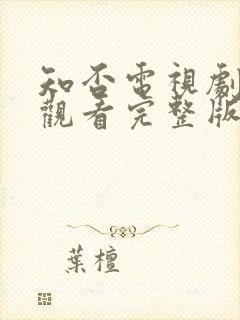 知否電視劇
觀看完整版
葉檀